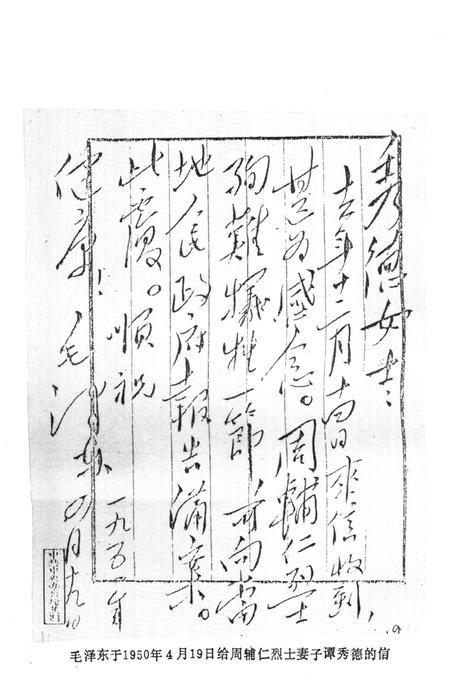 秀德女士：
去年十二月十四日來信收到，
甚为感念。周輔仁烈士
殉難犧牲一節，可向當
地人民政府報告備案。
此覆。順祝
健康！毛泽东
一九五〇年
四月十九日
毛泽东于1950年4月19日给周辅仁烈士妻子谭秀德的信